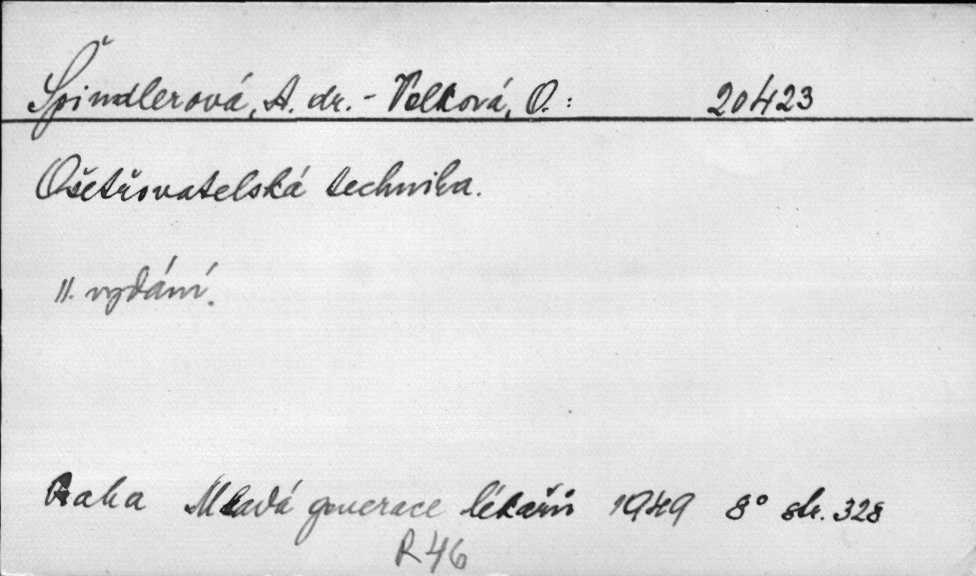 Špindlerová, A. dr. - Velková, O.: 20423
Ošetřovatelská technika.
II. vydání.
Praha Mladá generace lékařů 1949 8° str. 328
R 46